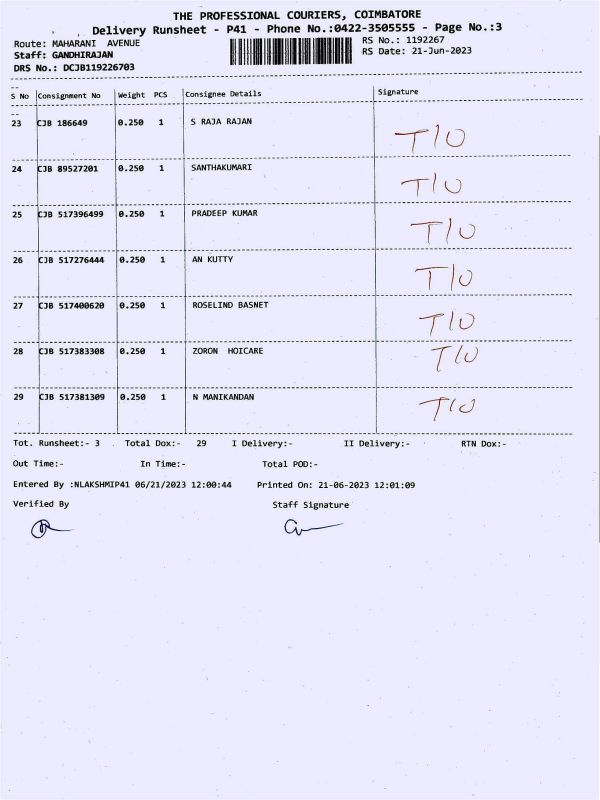 THE PROFESSIONAL COURIERS, COIMBATORE
Delivery Runsheet - P41 - Phone No.:0422-3505555 - Page No.:3
Route: MAHARANI AVENUE
RS No.: 1192267
Staff: GANDHIRAJAN
RS Date: 21-Jun-2023
DRS No.: DCJB119226703
S No Consignment No Weight PCS Consignee Details Signature
23 CJB 186649 0.250 1 S RAJA RAJAN T/O
24 CJB 89527201 0.250 1 SANTHAKUMARI T/O
25 CJB 517396499 0.250 1 PRADEEP KUMAR T/O
26 CJB 517276444 0.250 1 AN KUTTY T/O
27 CJB 517400620 0.250 1 ROSELIND BASNET T/O
28 CJB 517383308 0.250 1 ZORON HOICARE T/O
29 CJB 517381309 0.250 1 N MANIKANDAN T/O
Tot. Runsheet:- 3 Total Dox:- 29 I Delivery:- II Delivery:- RTN Dox:-
Out Time:- In Time:- Total POD:-
Entered By :NLAKSHMIP41 06/21/2023 12:00:44 Printed On: 21-06-2023 12:01:09
Verified By Staff Signature